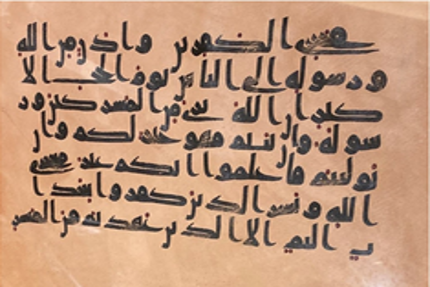 مخزى الكفرين واذن من الله
ورسوله الى الناس يوم الحج الا
كبر ان الله برى من المشركين ور
سوله فان تبتم فهو خير لكم وان
توليتم فاعلموا انكم غير معجزى
الله وبشر الذين كفروا بعذا
ب اليم الا الذين عهدتم من المشر